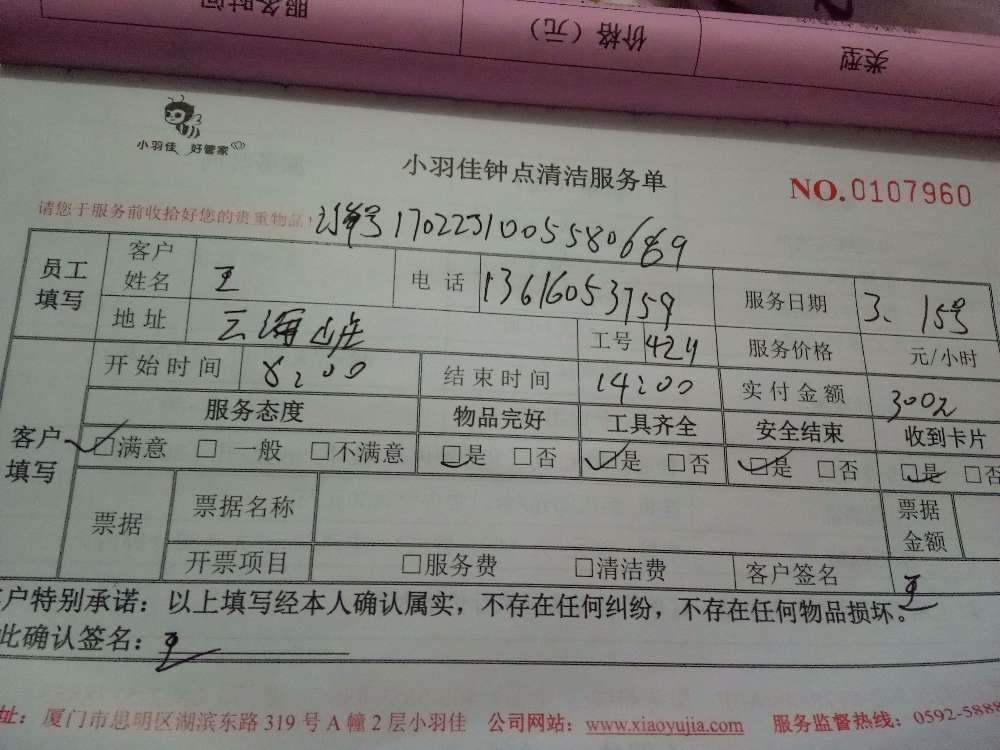 服务时间 价格（元） 类型
小羽佳 好管家
小羽佳钟点清洁服务单
NO.0107960
请您于服务前收拾好您的贵重物品！
订单号
员工填写 客户姓名 王 电话 13616053759 服务日期 3、15号
地址 工号 424 服务价格 元/小时
客户填写 开始时间 8:00 结束时间 14:00 实付金额 300元
服务态度 物品完好 工具齐全 安全结束 收到卡片
□满意 □一般 □不满意 □是 □否 □是 □否 □是 □否 □是 □否
票据 票据名称 票据金额
开票项目 □服务费 □清洁费 客户签名 王
户特别承诺：以上填写经本人确认属实，不存在任何纠纷，不存在任何物品损坏。
此确认签名：王
址：厦门市思明区湖滨东路319号A幢2层小羽佳 公司网站：www.xiaoyujia.com 服务监督热线：0592-5888